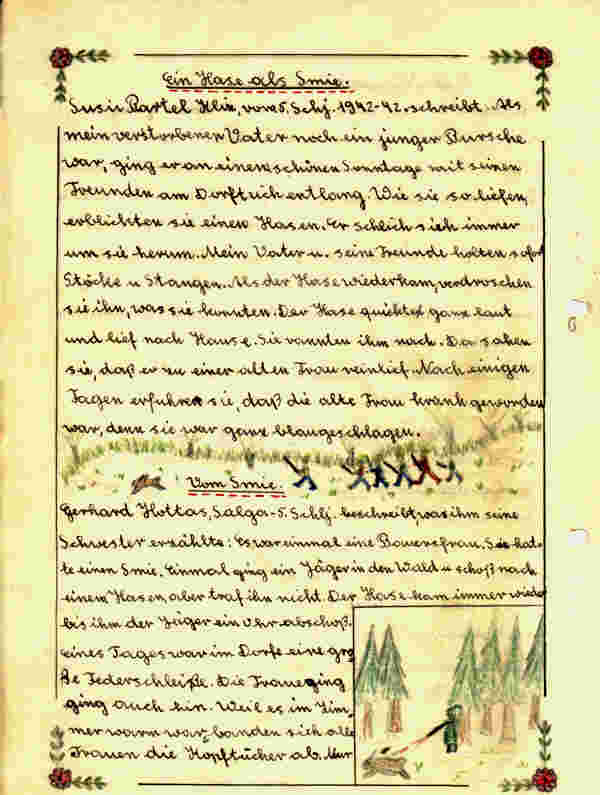 Ein Hase als Smie.
Susii Bartel Klix, vom 5. Schj. 1942-42. schreibt. Als
mein verstorbenen Vater noch ein junger Bursche
war, ging er an einem schönen Sonntage mit seinen
Freunden am Dorfteich entlang. Wie sie so liefen,
erblickten sie einen Hasen. Er schlich sich immer
um sie herum. Mein Vater u. seine Freunde holten sofort
Stöcke u Stangen. Als der Hase wiederkam, verdroschen
sie ihn, was sie konnten. Der Hase quickte ganz laut
und lief nach Hause. Sie rannten ihm nach. Da sahen
sie, daß er zu einer alten Frau reinlief. Nach einigen
Tagen erfuhren sie, daß die alte Frau krank geworden
war, denn sie war ganz blaugeschlagen.
Vom Smie.
Gerhard Kottas, Salga - 5. Schlj. beschreibt, was ihm seine
Schwester erzählte: Es war einmal eine Bauersfrau. Sie hat-
te einen Smie. Einmal ging ein Jäger in den Wald u schoß nach
einem Hasen, aber traf ihn nicht. Der Hase kam immer wieder
bis ihm der Jäger ein Uhr abschoß.
Eines Tages war im Dorfe eine gro
ße Federschleiße. Die Frau ging
ging auch hin. Weil es im Zim-
mer warm war, banden sich alle
Frauen die Kopftücher ab. Nur